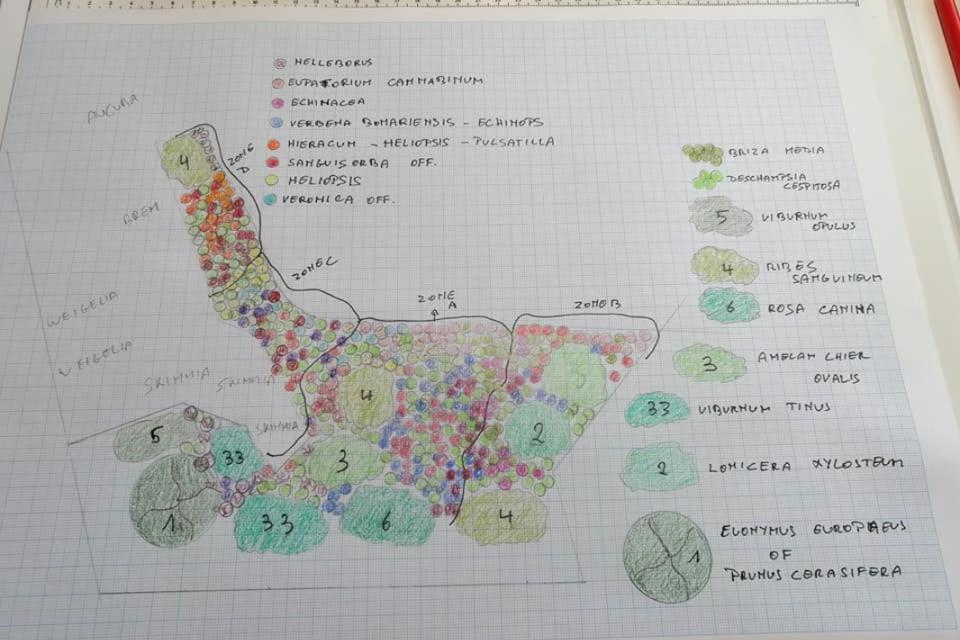 HELLEBORUS
EUPATORIUM CANNABINUM
ECHINACEA
VERBENA BONARIENSIS - ECHINOPS
HIERACUM - HELIOPSIS - PULSATILLA
SANGUISORBA OFF.
HELIOPSIS
VERONICA OFF.
AUCUBA
BREM
WEIGELIA
WEIGELIA
SKIMMIA
SKIMMIA
SKIMMIA
ZONE
D
ZONE C
ZONE
A
ZONE B
4
4
3
5
33
1
33
3
6
2
4
BRIZA MEDIA
DESCHAMPSIA
CESPITOSA
5 VIBURNUM
OPULUS
4 RIBES
SANGUINEUM
6 ROSA CANINA
3 AMELANCHIER
OVALIS
33 VIBURNUM TINUS
2 LONICERA XYLOSTEUM
1 EUONYMUS EUROPAEUS
OF
PRUNUS CERASIFERA